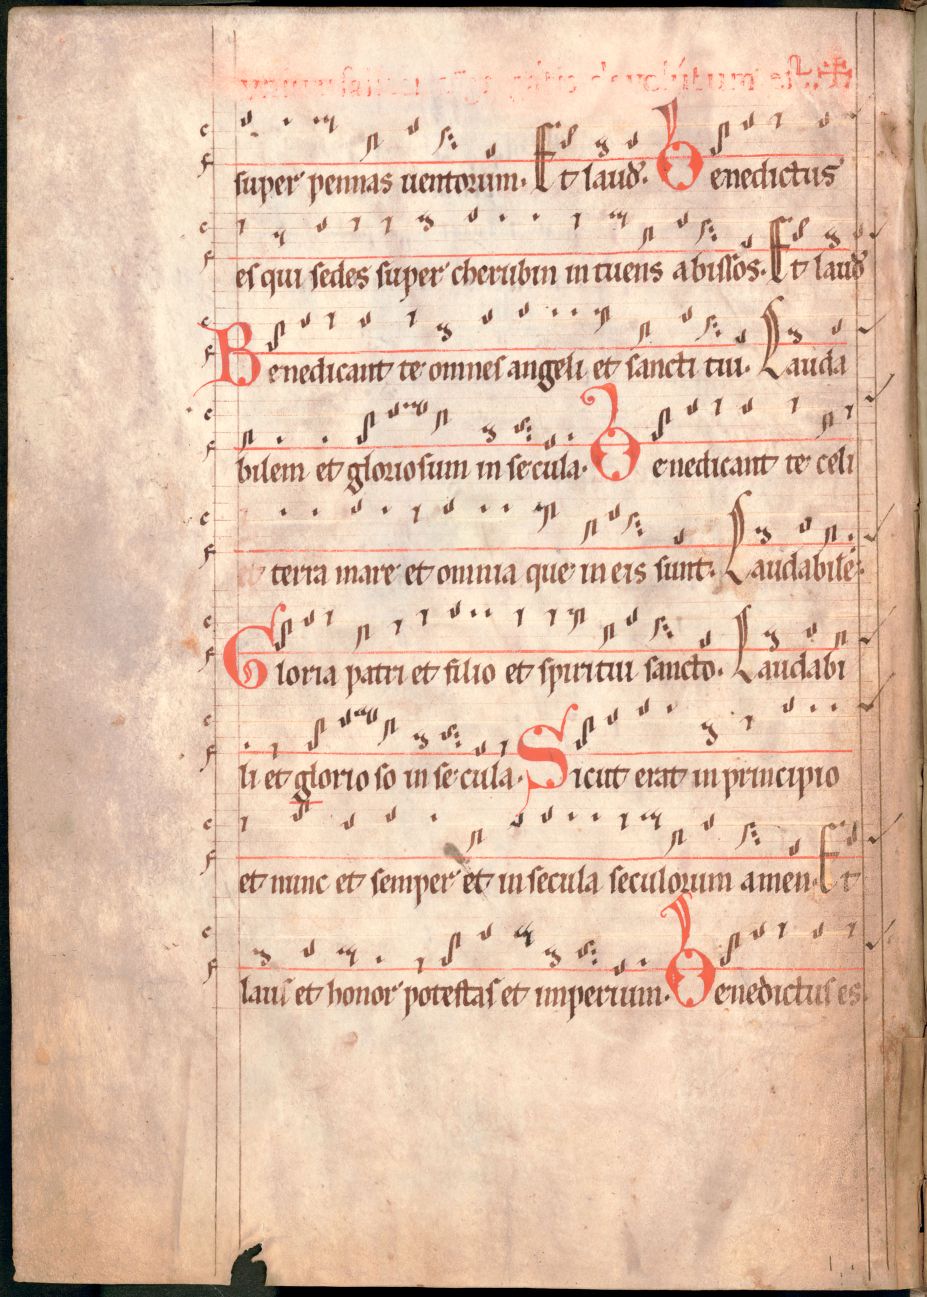 super pennas uentorum. Et laud. Benedictus
es qui sedes super cherubin intuens abissos. Et laud
Benedicant te omnes angeli et sancti tui. Lauda
bilem et gloriosum in secula. Benedicant te celi
et terra mare et omnia que in eis sunt. Laudabile.
Gloria patri et filio et spiritui sancto. Laudabi
li et glorioso in secula. Sicut erat in principio
et nunc et semper et in secula seculorum amen. Et
laus et honor potestas et imperium. Benedictus es